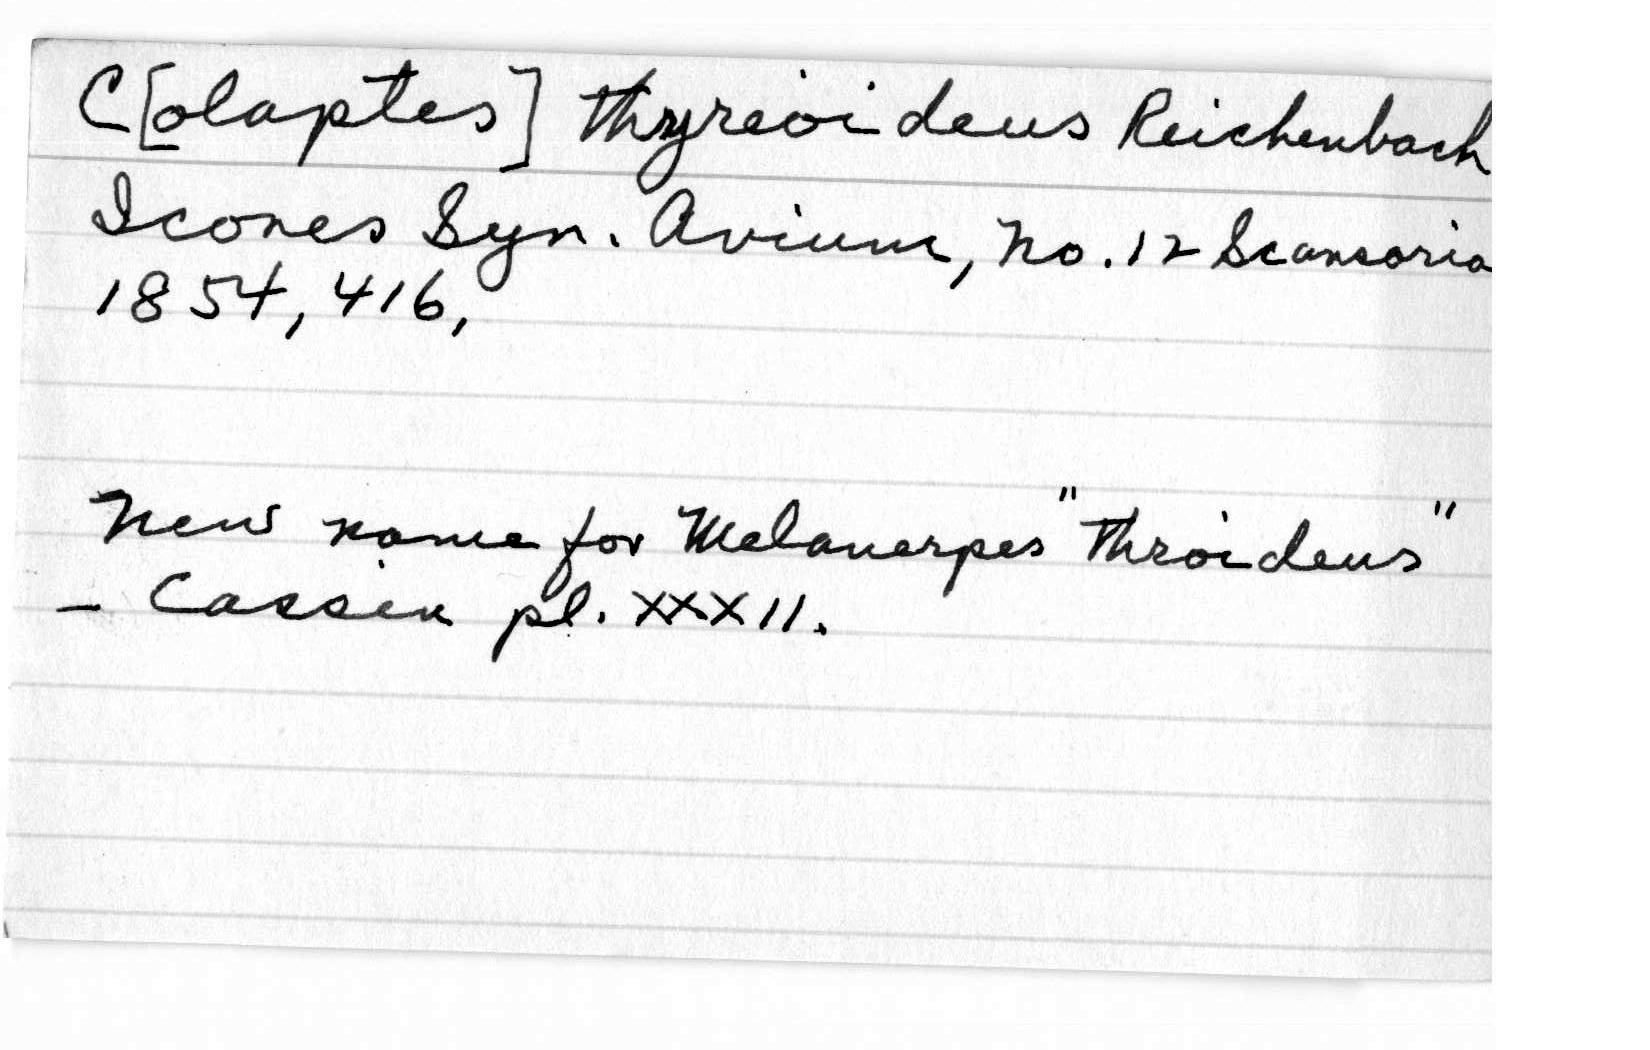 C[olaptes] thyreoideus Reichenbach
Icones Syn. Avium, No. 12 Scansoria
1854, 416,
New name for Melanerpes "Throideus"
- Cassin pl. XXXII.